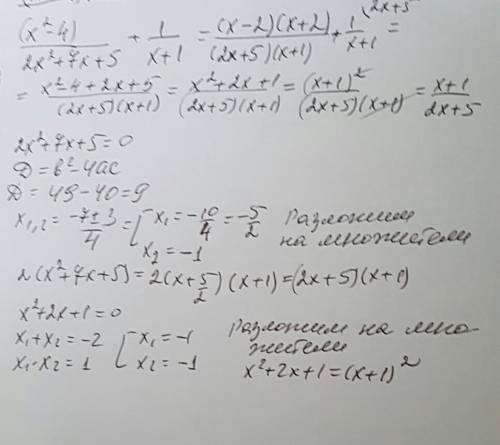 (x²-4)/(2x²+7x+5) + 1/(x+1) = (x-2)(x+2)/((2x+5)(x+1)) + 1/(x+1) (2x+5 =
= (x²-4+2x+5)/((2x+5)(x+1)) = (x²+2x+1)/((2x+5)(x+1)) = (x+1)²/((2x+5)(x+1)) = (x+1)/(2x+5)
2x²+7x+5=0
D=b²-4ac
D=49-40=9
x₁,₂ = (-7±3)/4 = [ x₁ = -10/4 = -5/2
x₂ = -1
Разложим
на множители
2(x²+7x+5)=2(x+5/2)(x+1)=(2x+5)(x+1)
x²+2x+1=0
x₁+x₂=-2 [ x₁=-1
x₁·x₂=1 x₂=-1
Разложим на мно-
жители
x²+2x+1=(x+1)²